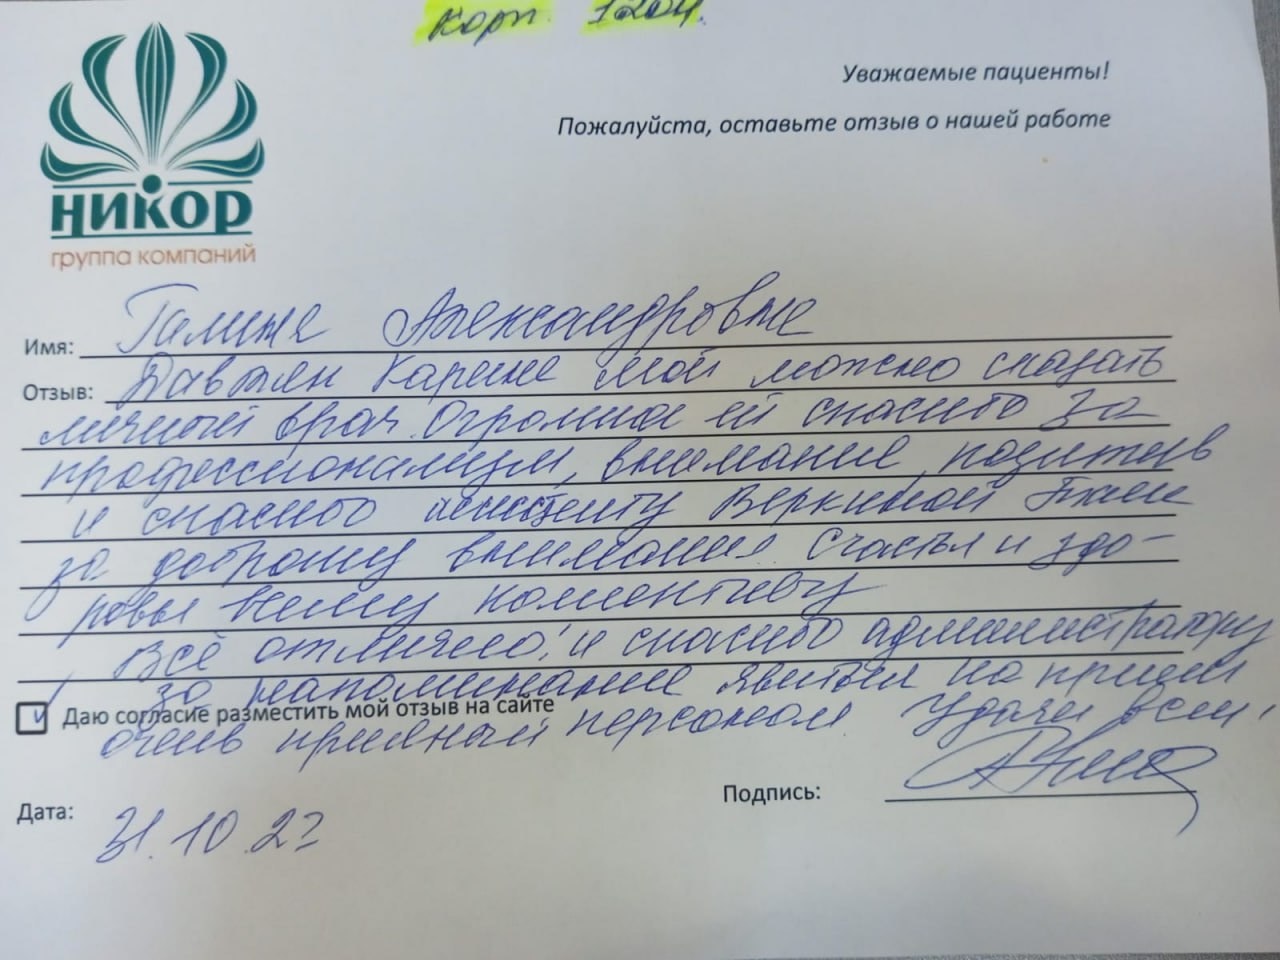 корп. 1204.
Уважаемые пациенты!
Пожалуйста, оставьте отзыв о нашей работе
НИКОР
группа компаний
Имя: Галина Александровна
Отзыв: Давтян Карине мой можно сказать
личный врач. Огромная ей спасибо за
профессионализм, внимание, позитив
и спасибо ассистенту Веркиной Тане
за доброту внимания. Счастья и здо-
ровья всему
Всё отлично! и спасибо администратору
за напоминание явиться на прием
Даю согласие разместить мой отзыв на сайте
очень приятный персонал Удачи всем!
Подпись:
Дата: 31.10.23